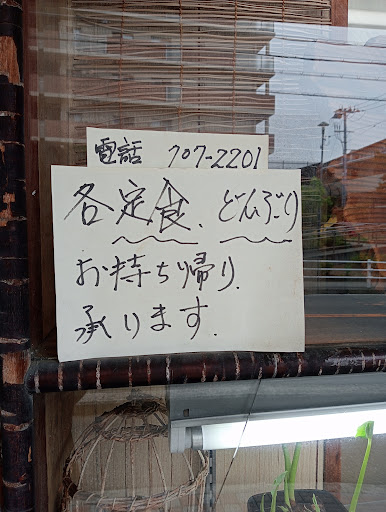 電話 707-2201
各定食、どんぶり
お持ち帰り.
承ります.